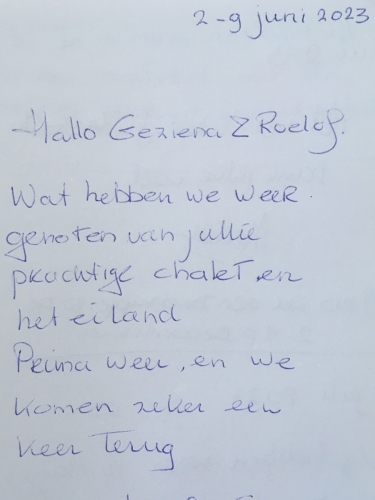 2-9 juni 2023
Hallo Geziena & Roelof.
Wat hebben we weer
genoten van jullie
prachtige chalet, en
het eiland
Prima weer, en we
komen zeker een
keer terug